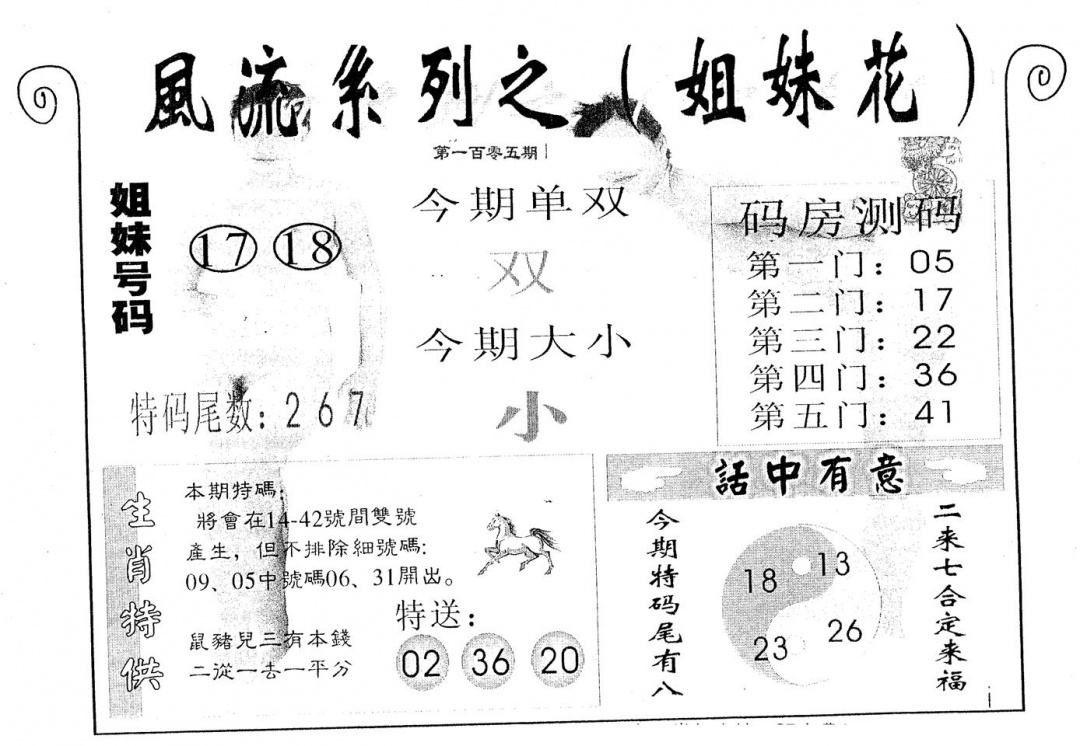 風流系列之（姐妹花）
第一百零五期
姐妹号码
17 18
特码尾数：267
今期单双
双
今期大小
小
码房测码
第一门：05
第二门：17
第三门：22
第四门：36
第五门：41
生肖特供
本期特碼：
將會在14-42號間雙號
產生，但不排除細號碼：
09、05中號碼06、31開出。
鼠豬兒三有本錢
二從一去一平分
特送：
02 36 20
話中有意
今期特码尾有八
18 13
23 26
二来七合定来福